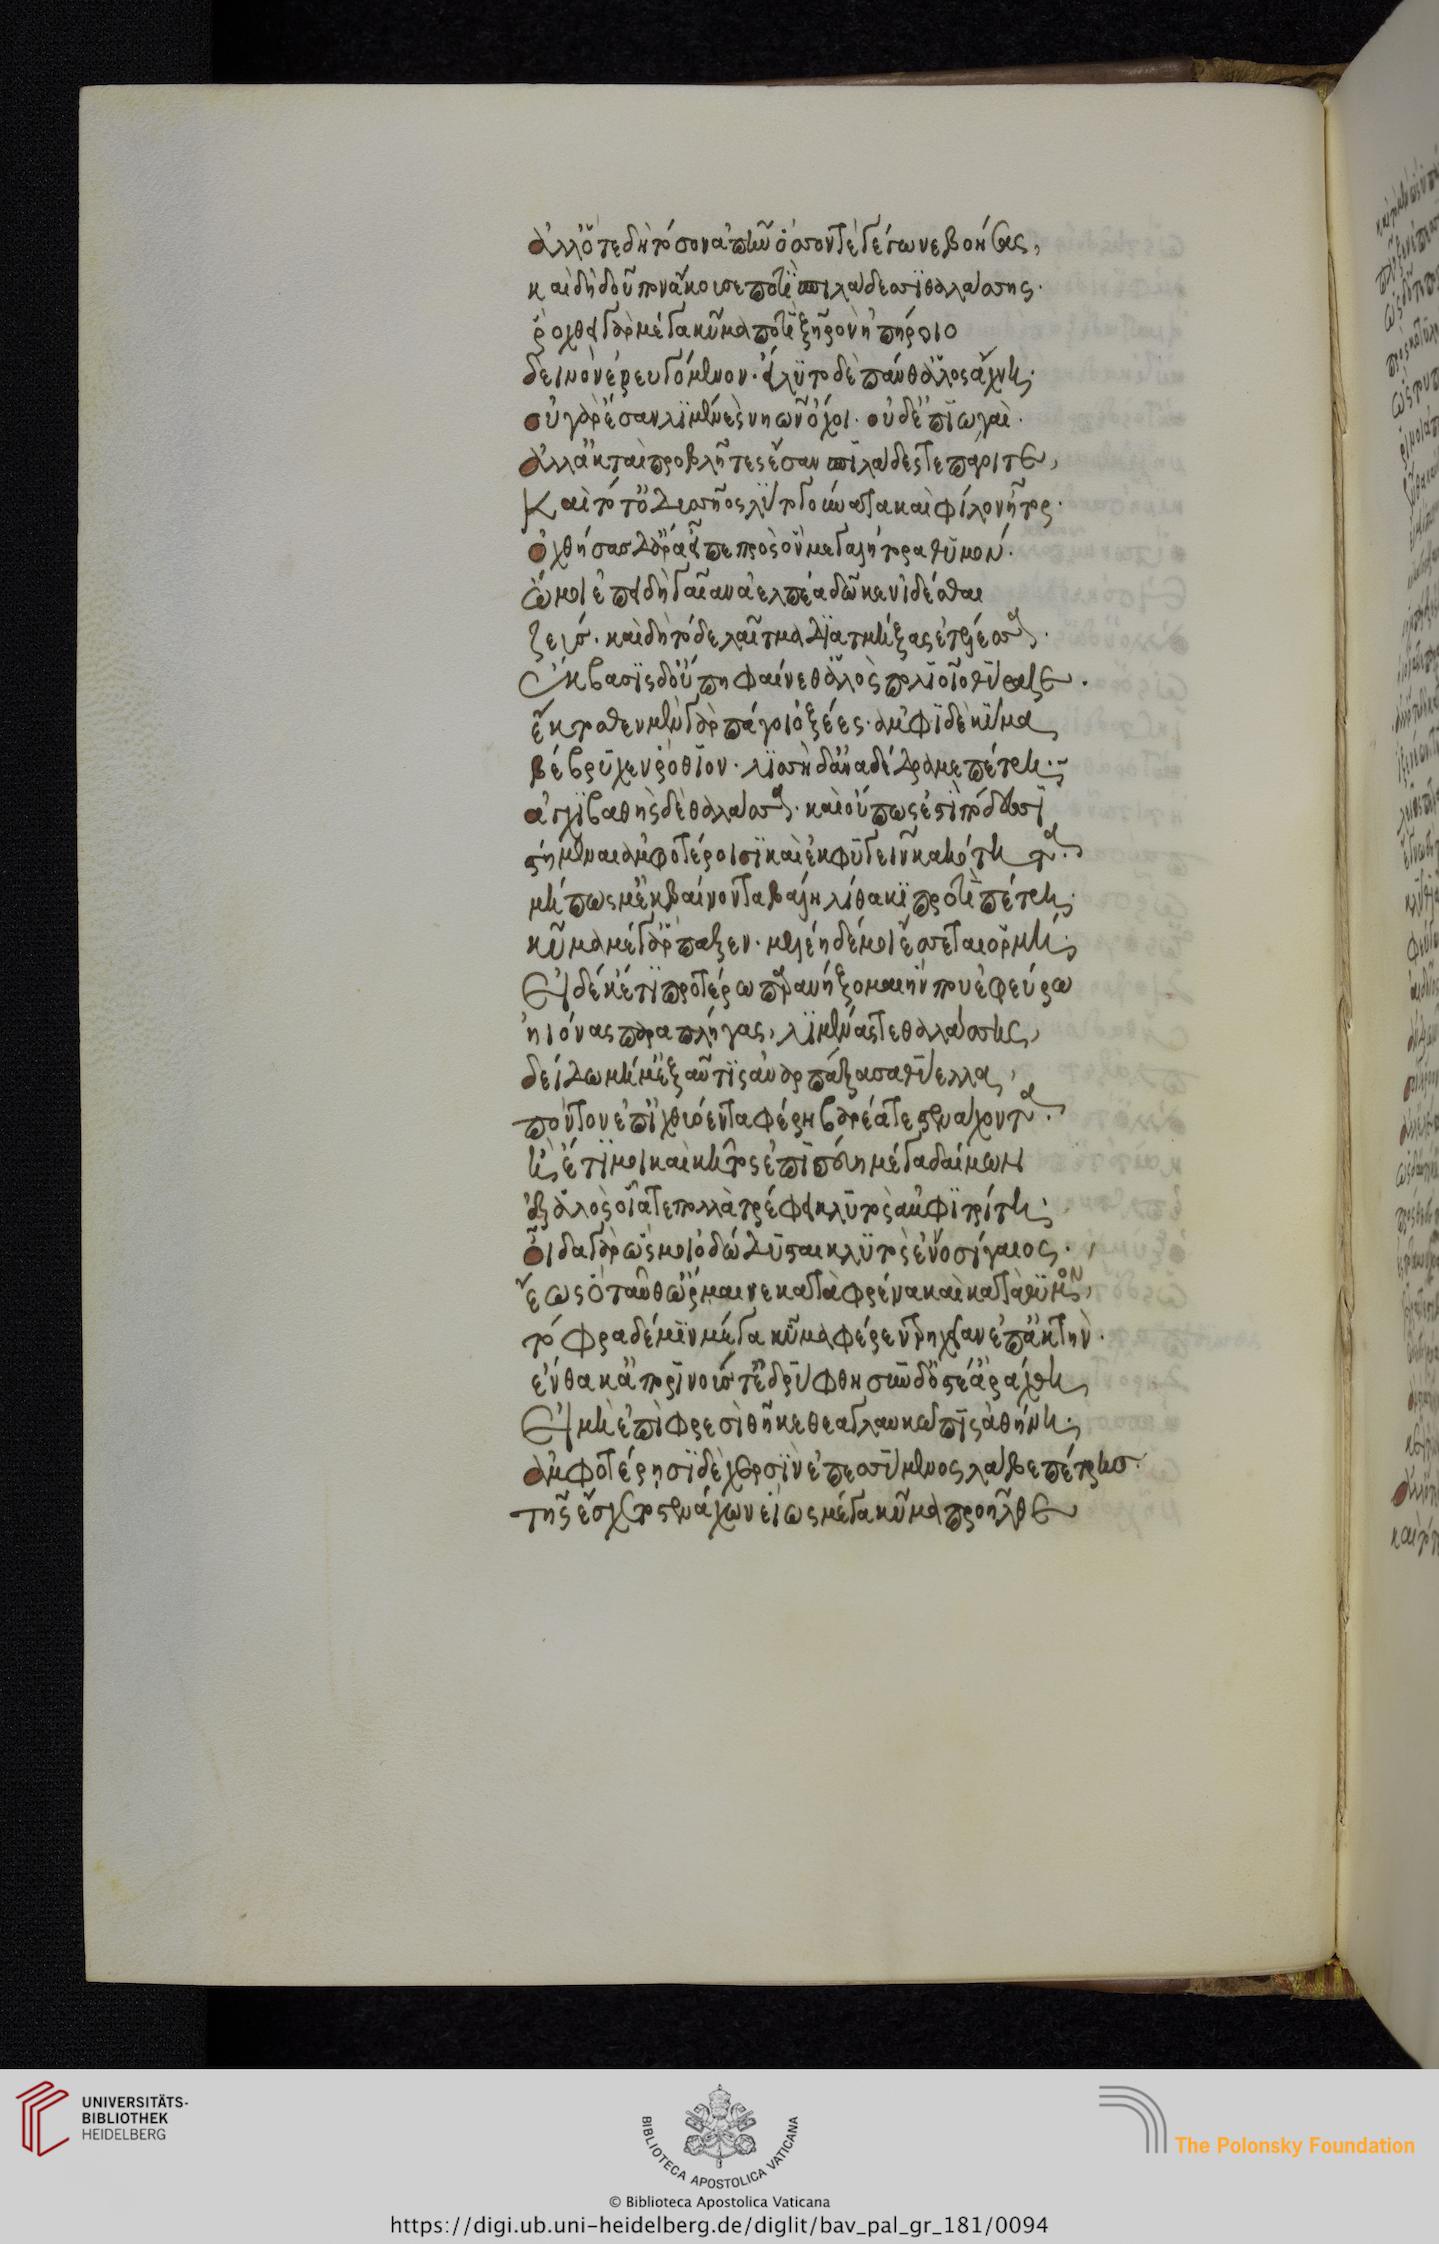 ἀλλ' ὅτε δὴ τόσσον ἀπῆν ὅσσον τε γέγωνε βοήσας,
καὶ δὴ δοῦπον ἄκουσε ποτὶ σπιλάδεσσι θαλάσσης·
ῥόχθει γὰρ μέγα κῦμα ποτὶ ξηρὸν ἠπείροιο
δεινὸν ἐρευγόμενον· εἴλυτο δὲ πάνθ' ἁλὸς ἄχνῃ·
οὐ γὰρ ἔσαν λιμένες νηῶν ὄχοι· οὐδ' ἐπιωγαὶ·
ἀλλ' ἀκταὶ προβλῆτες ἔσαν σπιλάδες τε πάγοι τε,
καὶ τότ' ὀδυσσῆος λύτο γούνατα καὶ φίλον ἦτορ·
ὀχθήσας δ' ἄρα εἶπε πρὸς ὃν μεγαλήτορα θυμόν·
ὤμοι ἐπειδὴ γαῖαν ἀελπέα δῶκεν ἰδέσθαι
ζεύς· καὶ δὴ τόδε λαῖτμα διατμήξας ἐτέλεσσα·
ἔκβασις δ' οὔ πη φαίνεθ' ἁλὸς πολιοῖο θύραζε·
ἔκτοθεν μὲν γὰρ πάγοι ὀξέες· ἀμφὶ δὲ κῦμα
βέβρυχεν ῥόθιον· λισσὴ δ' ἀναδέδρομε πέτρη·
ἀγχιβαθὴς δὲ θάλασσα· καὶ οὔπως ἐστὶ πόδεσσι
στήμεναι ἀμφοτέροισι καὶ ἐκφυγέειν κακότητα·
μήπως μ' ἐκβαίνοντα βάλῃ λίθακι προτὶ πέτρῃ
κῦμα μέγ' ἁρπάξαν· μελέη δέ μοι ἔσσεται ὁρμή·
εἰ δέ κ' ἔτι προτέρω παρανήξομαι ἤν που ἐφεύρω
ἠϊόνας παραπλήγας, λιμένας τε θαλάσσης,
δείδω μή μ' ἐξαῦτις ἀναρπάξασα θύελλα,
πόντον ἐπ' ἰχθυόεντα φέρῃ βαρέα στενάχοντα·
ἠὲ ἔτι μοι καὶ κῆτος ἐπισσεύῃ μέγα δαίμων
ἐξ ἁλὸς οἷά τε πολλὰ τρέφει κλυτὸς ἀμφιτρίτη·
οἶδα γὰρ ὥς μοι ὀδώδυσται κλυτὸς ἐννοσίγαιος·
ἕως ὁ ταῦθ' ὥρμαινε κατὰ φρένα καὶ κατὰ θυμὸν,
τόφρα δέ μιν μέγα κῦμα φέρεν τρηχεῖαν ἐπ' ἀκτήν·
ἔνθα κ' ἀπὸ ῥινοὺς τε δρύφθη σὺν δ' ὀστέ' ἀράχθη,
εἰ μὴ ἐπὶ φρεσὶ θῆκε θεὰ γλαυκῶπις ἀθήνη·
ἀμφοτέρῃσι δὲ χερσὶν ἐπεσσύμενος λάβε πέτρης·
τῆς ἔσχετο στενάχων εἵως μέγα κῦμα προῆλθε
UNIVERSITÄTS-
BIBLIOTHEK
HEIDELBERG
BIBLIOTECA APOSTOLICA VATICANA
The Polonsky Foundation
© Biblioteca Apostolica Vaticana
https://digi.ub.uni-heidelberg.de/diglit/bav_pal_gr_181/0094